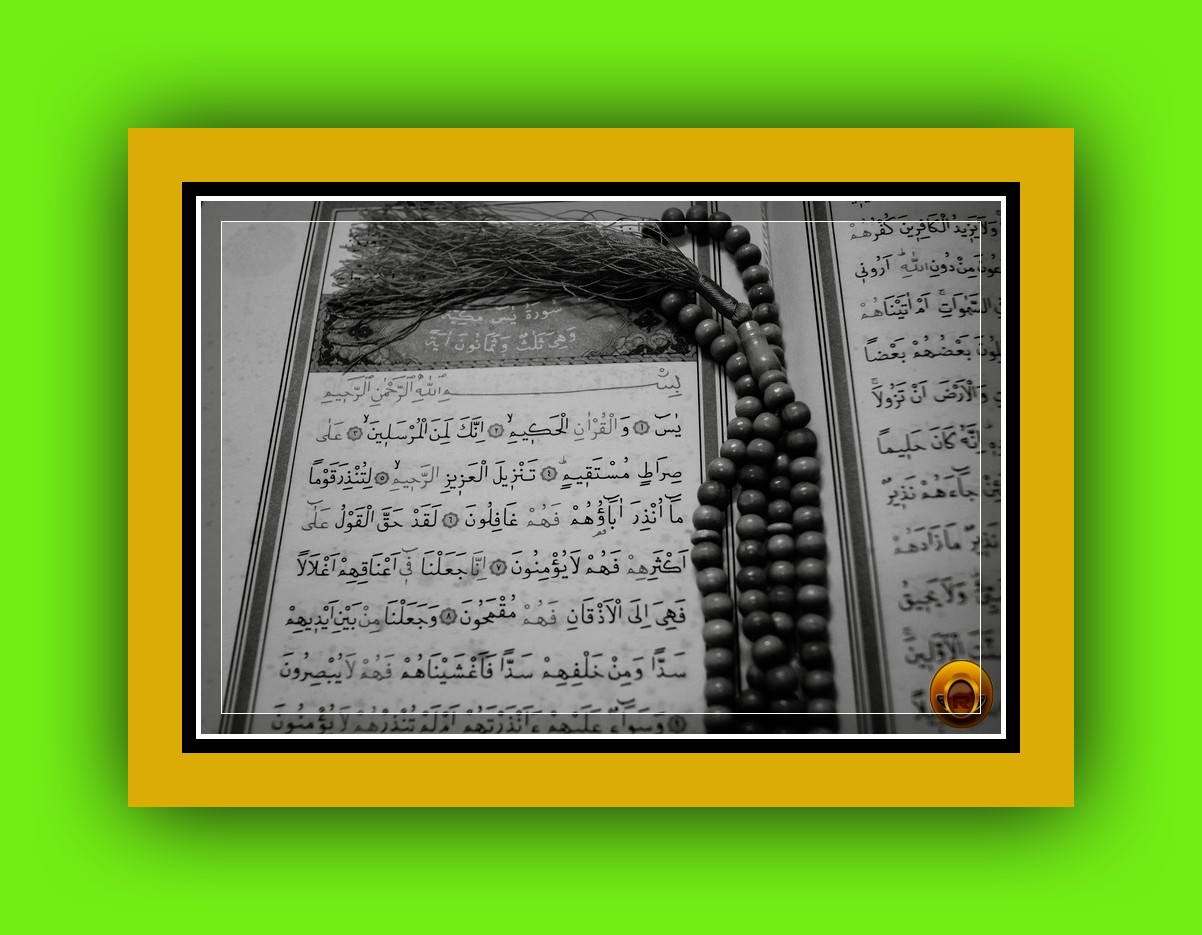 سُورَةُ يٰسٓ مَكِّيَّة
وَهِيَ ثَلٰثٌ وَثَمَانُونَ اٰيَةً
بِسْمِ اللّٰهِ الرَّحْمٰنِ الرَّحِيمِ
يٰسٓ ﴿١﴾ وَالْقُرْاٰنِ الْحَكِيمِۙ ﴿٢﴾ اِنَّكَ لَمِنَ الْمُرْسَلِينَۙ ﴿٣﴾ عَلٰى
صِرَاطٍ مُسْتَقِيمٍۜ ﴿٤﴾ تَنْزِيلَ الْعَزِيزِ الرَّحِيمِۙ ﴿٥﴾ لِتُنْذِرَ قَوْمًا
مَٓا اُنْذِرَ اٰبَٓاؤُ۬هُمْ فَهُمْ غَافِلُونَ ﴿٦﴾ لَقَدْ حَقَّ الْقَوْلُ عَلٰٓى
اَكْثَرِهِمْ فَهُمْ لَا يُؤْمِنُونَ ﴿٧﴾ اِنَّا جَعَلْنَا فِٓي اَعْنَاقِهِمْ اَغْلَالًا
فَهِيَ اِلَى الْاَذْقَانِ فَهُمْ مُقْمَحُونَ ﴿٨﴾ وَجَعَلْنَا مِنْ بَيْنِ اَيْدِيهِمْ
سَدًّا وَمِنْ خَلْفِهِمْ سَدًّا فَاَغْشَيْنَاهُمْ فَهُمْ لَا يُبْصِرُونَ
﴿٩﴾ وَسَوَٓاءٌ عَلَيْهِمْ ءَاَنْذَرْتَهُمْ اَمْ لَمْ تُنْذِرْهُمْ لَا يُؤْمِنُونَ
وَلَا يَزِيدُ الْكَافِرِينَ كُفْرُهُمْ
مِنْ دُونِ اللّٰهِۜ اَرُونِي
اَمْ اٰتَيْنَاهُمْ
بَعْضُهُمْ بَعْضًا
وَالْاَرْضَ اَنْ تَزُولَاۚ
اِنَّهُ كَانَ حَلِيمًا
جَٓاءَهُمْ نَذِيرٌ
نَذِيرٌ مَا زَادَهُمْ
وَلَا يَحِيقُ
الْاَوَّلِينَۚ